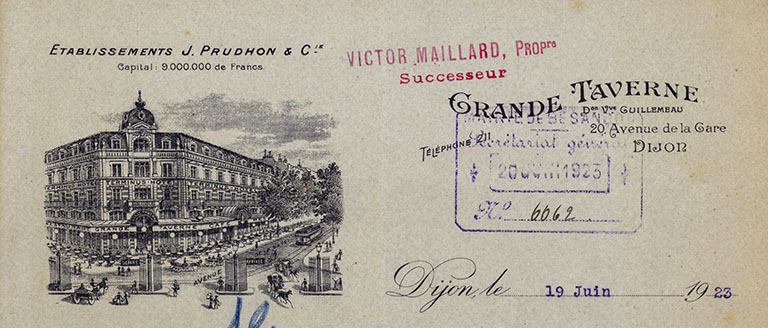 ETABLISSEMENTS J. PRUDHON & Cie
Capital: 9.000.000 de Francs.
VICTOR MAILLARD, Propre
Successeur
GRANDE TAVERNE
Don Vve GUILLEMEAU
20, Avenue de la Gare
TÉLÉPHONE 2.11
DIJON
MAIRIE DE BESANÇON
Secrétariat général
20 JUIN 1923
No 6062
TERMINUS HOTEL
GRANDE TAVERNE
AVENUE
Dijon, le 19 Juin 1923